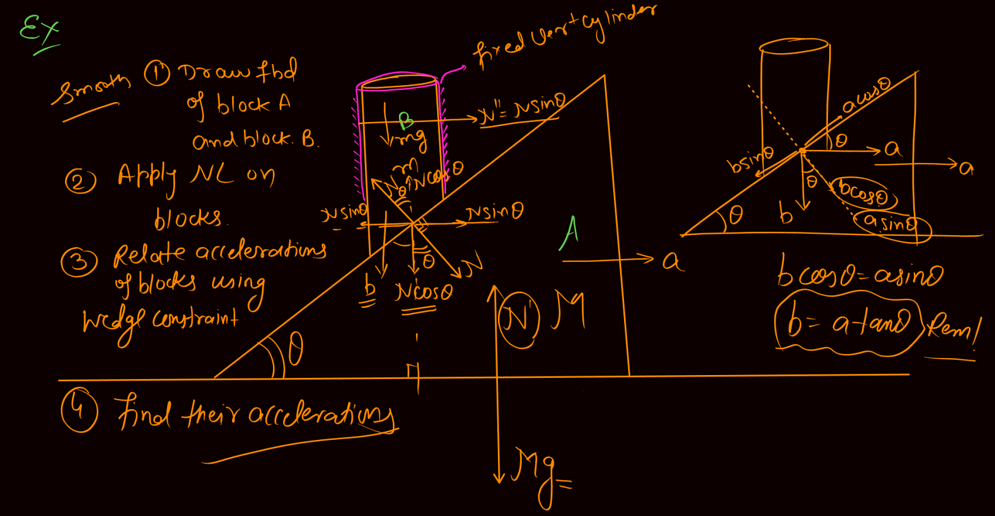 Ex
Smooth
① Draw fbd
of block A
and block B.
② Apply NL on
blocks.
③ Relate accelerations
of blocks using
wedge constraint
④ find their accelerations
fixed vert cylinder
B
N'' = N sinθ
mg
m
N
N cosθ
θ
N sinθ
N sinθ
θ
N
b
N cosθ
θ
A
a
N'
M
Mg
a cosθ
θ
b sinθ
a
a
θ
b cosθ
b
a sinθ
θ
b cosθ = a sinθ
b = a tanθ
Rem!